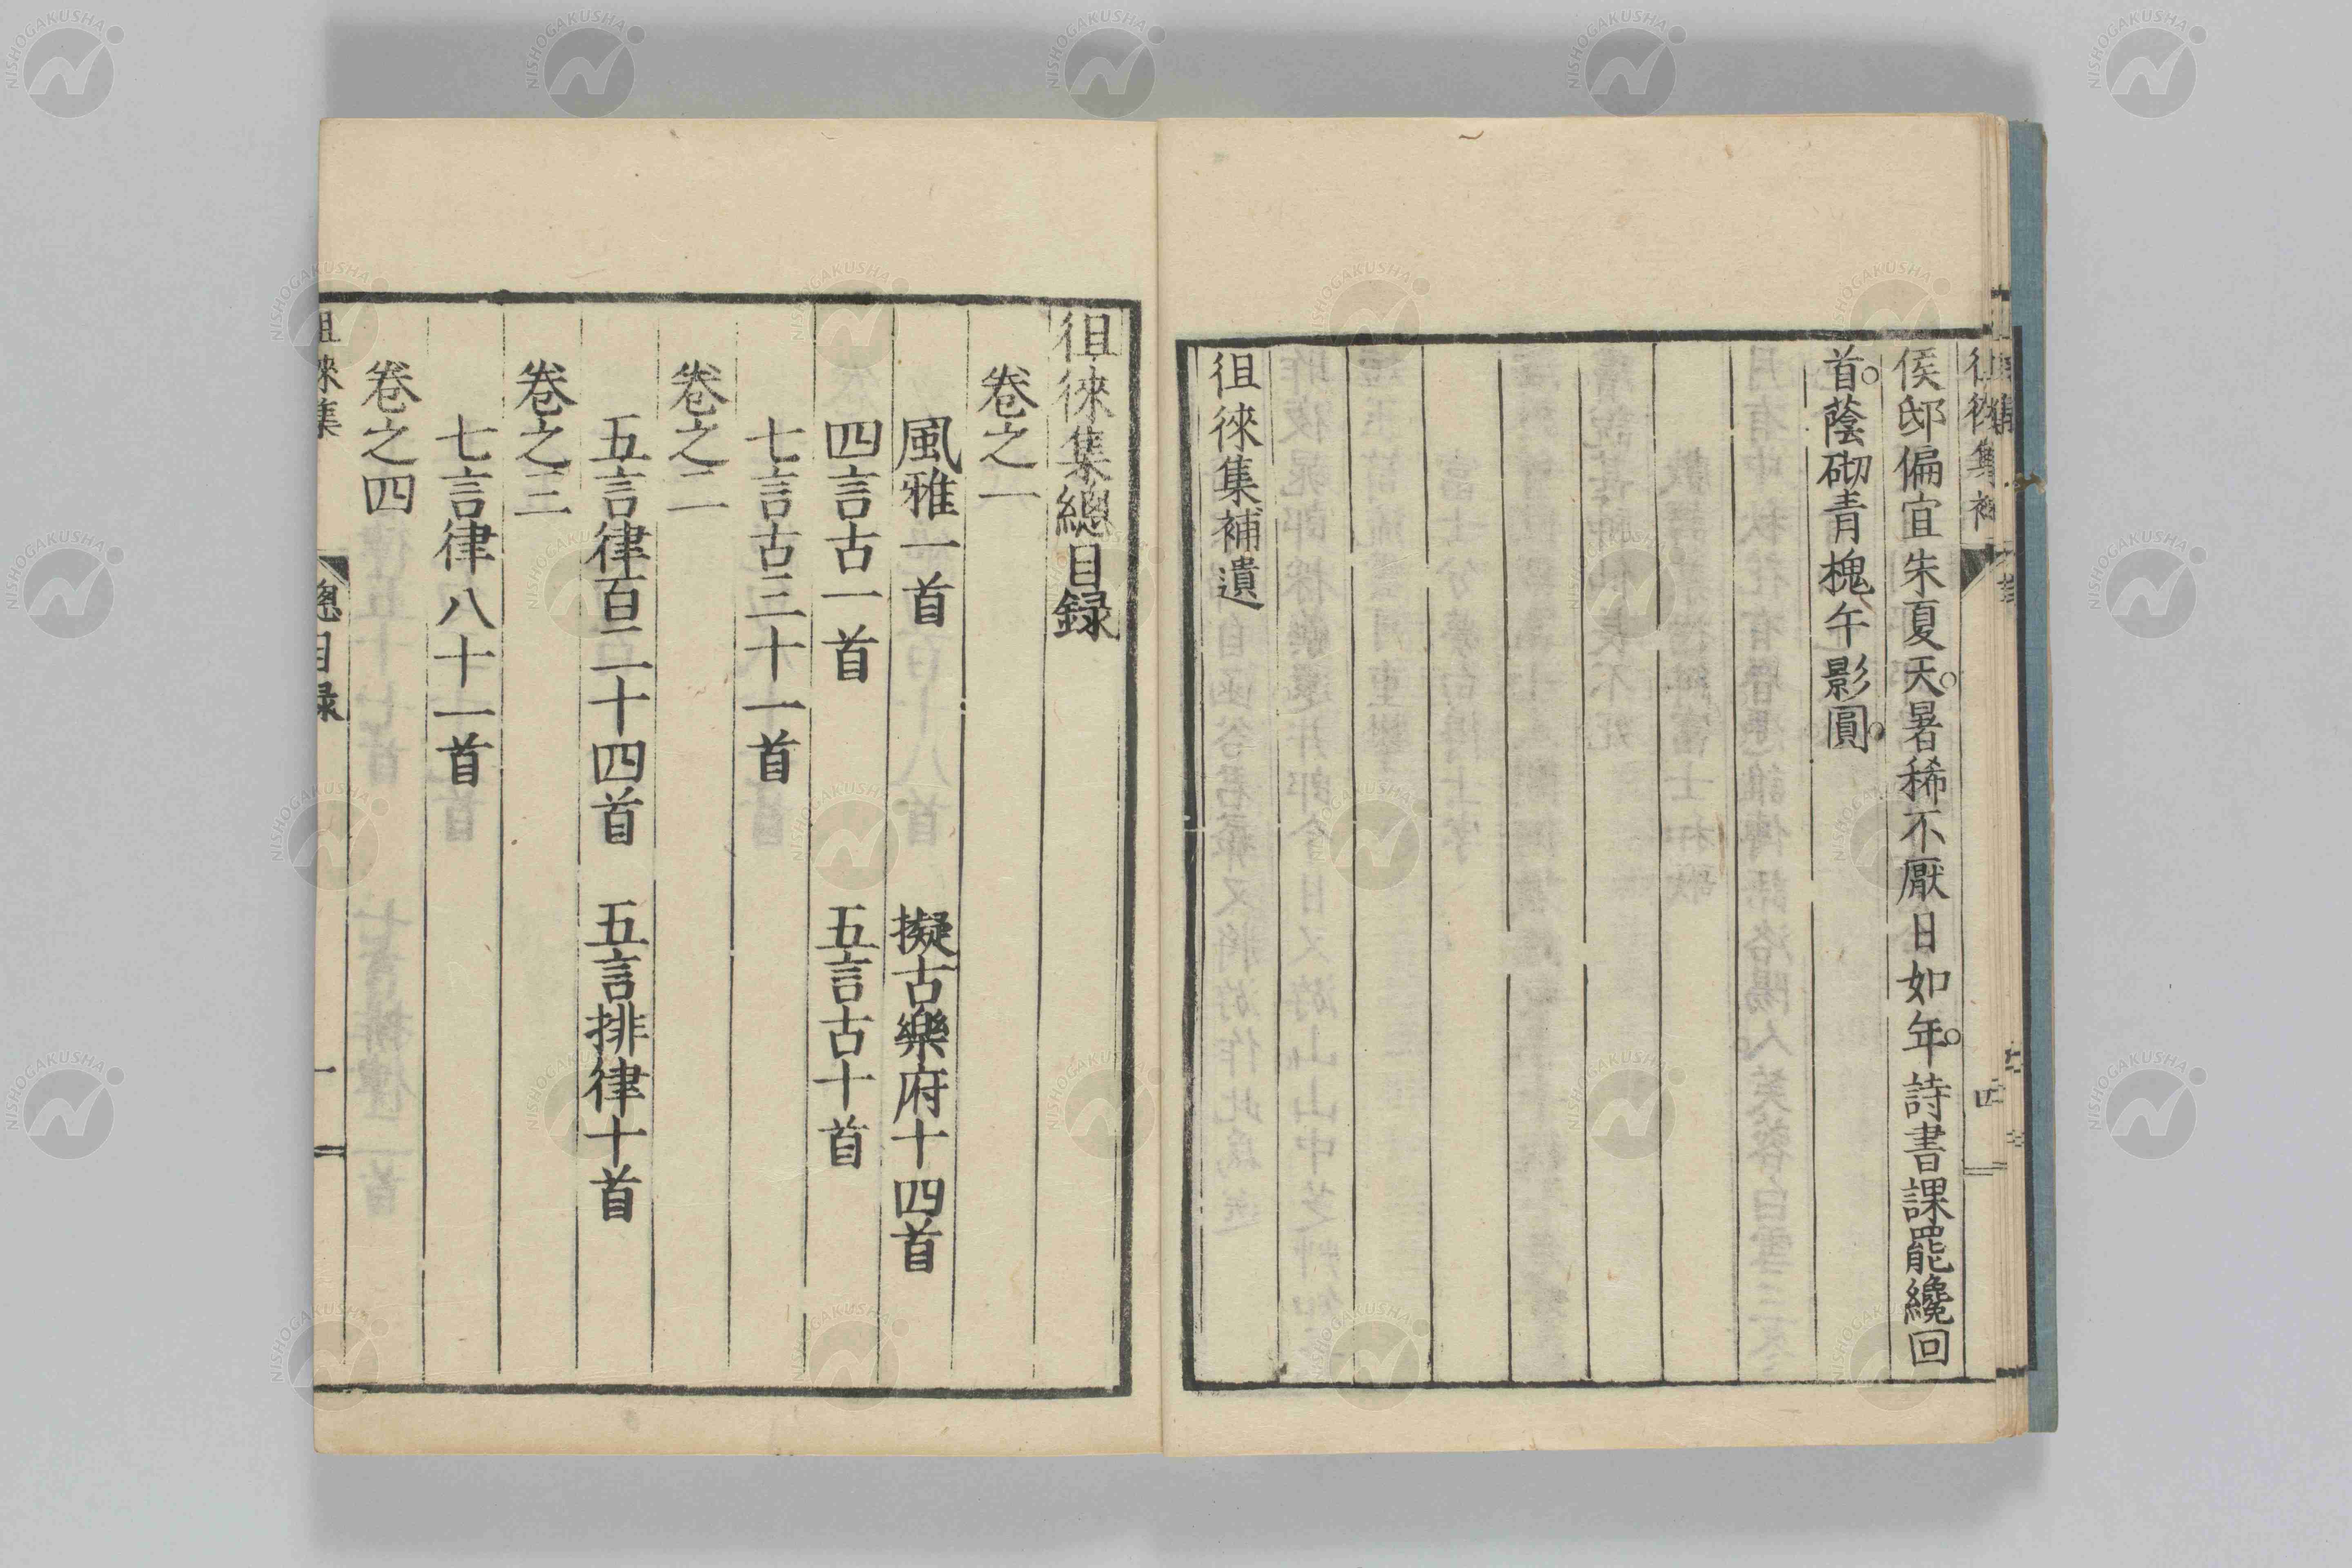 侯邸偏宜朱夏天。暑稀不厭日如年。詩書課罷纔回
首。蔭砌青槐午影圓。
徂徠集補遺
徂徠集總目録
卷之一
風雅一首 擬古樂府十四首
四言古一首 五言古十首
七言古三十一首
卷之二
五言律百二十四首 五言排律十首
卷之三
七言律八十一首
卷之四
徂徠集 總目録 一
NISHOGAKUSHA